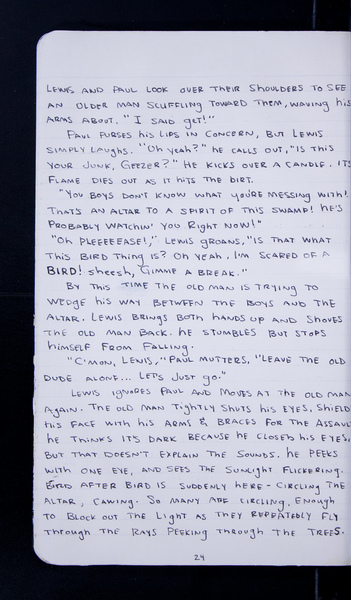 LEWIS AND PAUL LOOK OVER THEIR SHOULDERS TO SEE
AN OLDER MAN SCUFFLING TOWARD THEM, WAVING his
ARMS ABOUT. "I SAID GET!"
PAUL PURSES his LIPS IN CONCERN, BUT LEWIS
SIMPLY LAUGHS. "Oh yeah?" hE CALLS OUT, "IS THIS
YOUR JUNK, GEEZER?" HE KICKS OVER A CANDLE. ITS
FLAME DIES OUT AS IT hITS THE DIRT.
"YOU BOYS DON'T KNOW WHAT YOU'RE MESSING WITH!
THAT'S AN ALTAR TO A SPIRIT OF THIS SWAMP! hE'S
PROBABLY WATCHIN' YOU RIGHT NOW!"
"Oh PLEEEEEASE!," LEWIS GROANS, "IS THAT WHAT
THIS BIRD THING IS? Oh YEAH. I'M SCARED OF A
BIRD! Sheesh, GIMME A BREAK."
BY THIS TIME THE OLD MAN IS TRYING TO
WEDGE his WAY BETWEEN THE BOYS AND THE
ALTAR. LEWIS BRINGS BOTH hANDS UP AND ShOVES
THE OLD MAN BACK. hE STUMBLES BUT STOPS
himSELF FROM FALLING.
"C'MON, LEWIS," PAUL MUTTERS, "LEAVE THE OLD
DUDE ALONE... LET'S JUST GO."
LEWIS IGNORES PAUL AND MOVES AT THE OLD MAN
AGAIN. THE OLD MAN TIGHTLY SHUTS his EYES, SHIELDS
his FACE WITH his ARMS & BRACES FOR THE ASSAULT
hE THINKS IT'S DARK BECAUSE hE CLOSED his EYES,
BUT THAT DOESN'T EXPLAIN THE SOUNDS. hE PEEKS
WITH ONE EYE, AND SEES THE SUNLIGHT FLICKERING.
BIRD AFTER BIRD IS SUDDENLY HERE - CIRCLING THE
ALTAR, CAWING. SO MANY ARE CIRCLING, ENOUGH
TO BLOCK OUT THE LIGHT AS THEY REPEATEDLY FLY
THROUGH THE RAYS PEEKING THROUGH THE TREES.
24